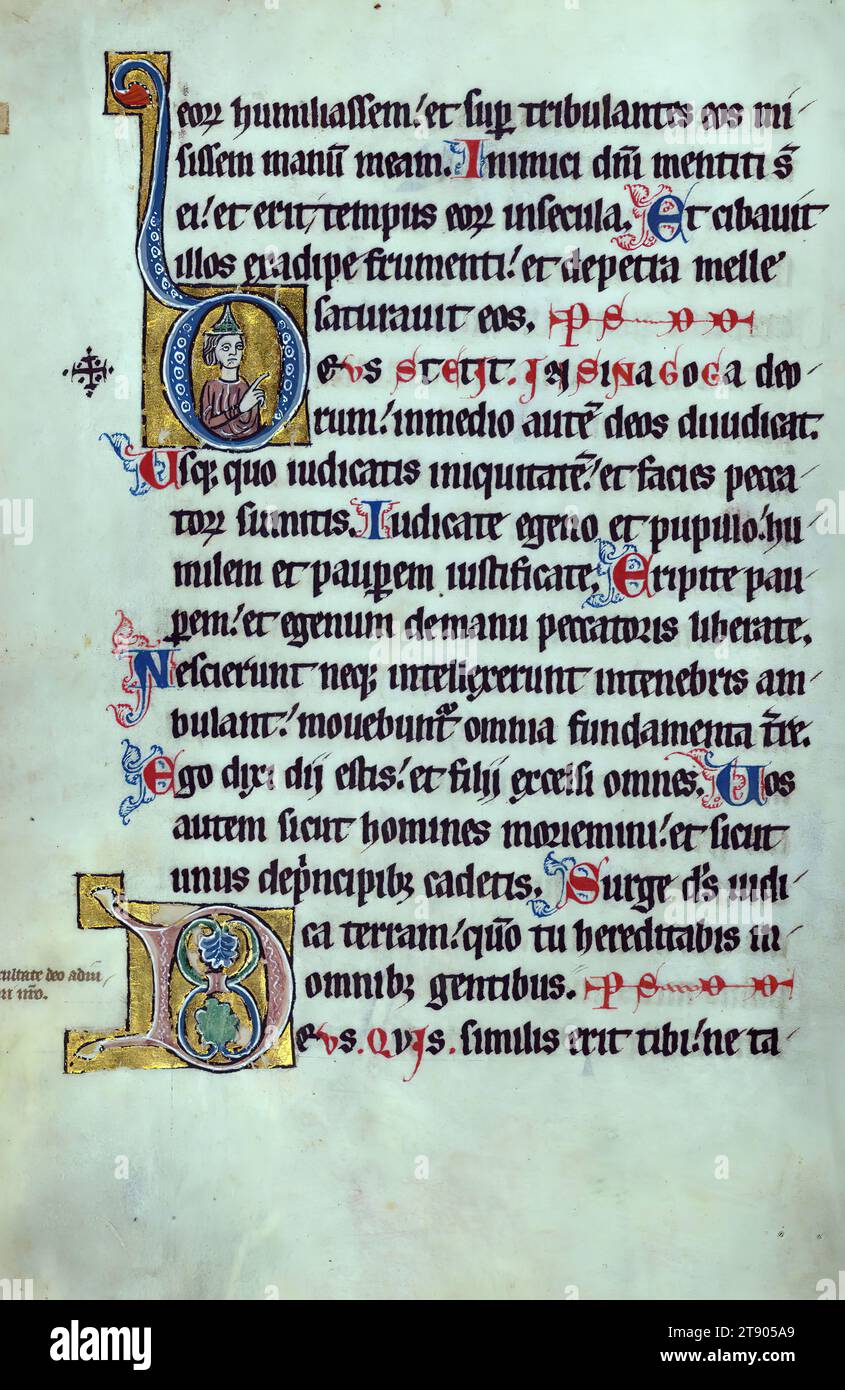 eoꝝ humiliassem: et sup tribulantes eos mi
sissem manū meam. Inimici dn̄i mentiti s̄
ei: et erit tempus eoꝝ insecula. Et cibauit
illos exadipe frumenti: et depetra melle
saturauit eos. PS
eus stetit. in sinagoga deo
rum: inmedio autē deos diiudicat.
Usqꝫ quo iudicatis iniquitatē: et facies pecca
toꝝ sumitis. Iudicate egeno et pupillo: hu
milem et pauꝑem iustificate. Eripite pau
ꝑem: et egenum demanu peccatoris liberate.
Nescierunt neqꝫ intellexerunt intenebris am
bulant: mouebunt᷑ omnia fundamenta tr̄e.
Ego dixi dij estis: et filij excelsi omnes. Uos
autem sicut homines moriemini: et sicut
unus dep̍ncipibꝫ cadetis. Surge d̄s iudi
ca terram: qūo tu hereditabis in
omnibꝫ gentibus. PS
eus. quis. similis erit tibi: ne ta
alamy
Image ID: 2T905A9
www.alamy.com